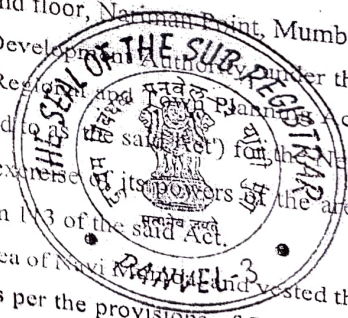 nd floor, Nariman Point, Mumb
Development Authority under th
Regional and Town Planning Ac
d to as the said Act') for the Ne
exercise of its powers of the are
n 113 of the said Act.
ea of Navi and vested th
s per the provisions
THE SEAL OF THE SUB-REGISTRAR
PANVEL-3
पनवेल
सत्यमेव जयते